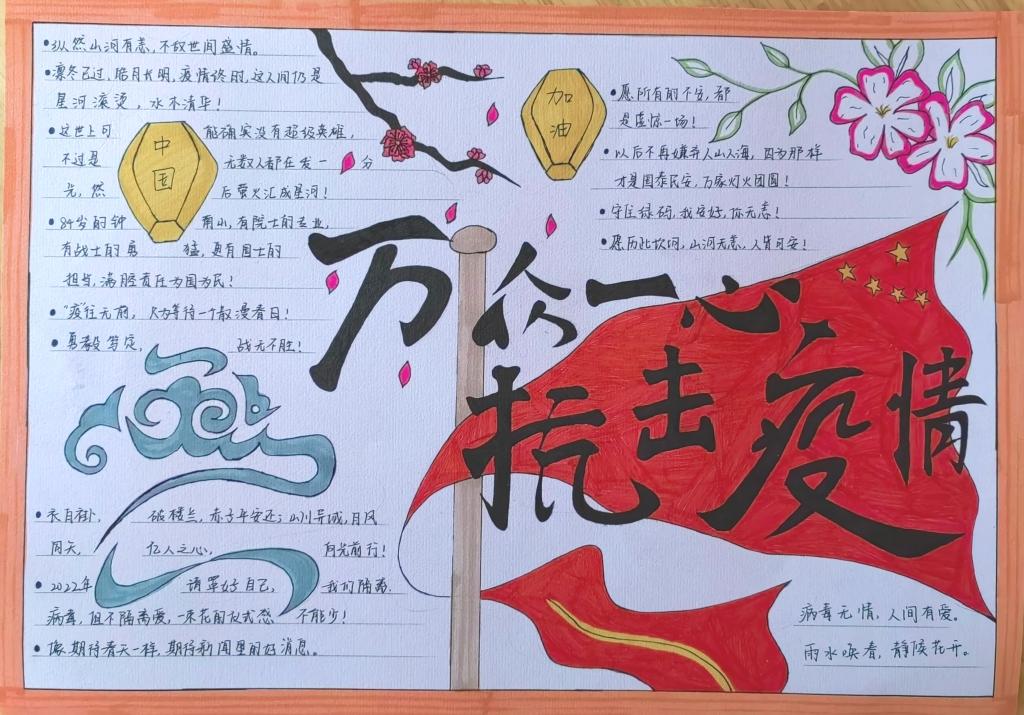 纵然山河有恙，不改世间盛情。
凛冬已过，皓月长明，疫情终时，这人间仍是
星河滚烫，水木清华！
这世上可能确实没有超级英雄，
不过是无数人都在发一分
光，然后萤火汇成星河！
84岁的钟南山，有院士的专业，
有战士的勇猛，更有国士的
担当，满腔责任为国为民！
"疫往无前，只为等待一个散漫春日！
勇毅笃定，战无不胜！
中国
加油
愿所有的不安，都
是虚惊一场！
以后不再嫌弃人山人海，因为那样
才是国泰民安，万家灯火团圆！
守住绿码，我安好，你无恙！
愿历此坎坷，山河无恙，人皆可安！
万众一心
抗击疫情
衣白褂，破楼兰，赤子平安还；山川异域，日风
同天，亿人之心，向光前行！
2022年请罩好自己，我们隔离
病毒，但不隔离爱，一朵花的仪式感不能少！
像期待春天一样，期待新闻里的好消息。
病毒无情，人间有爱。
雨水唤春，静候花开。